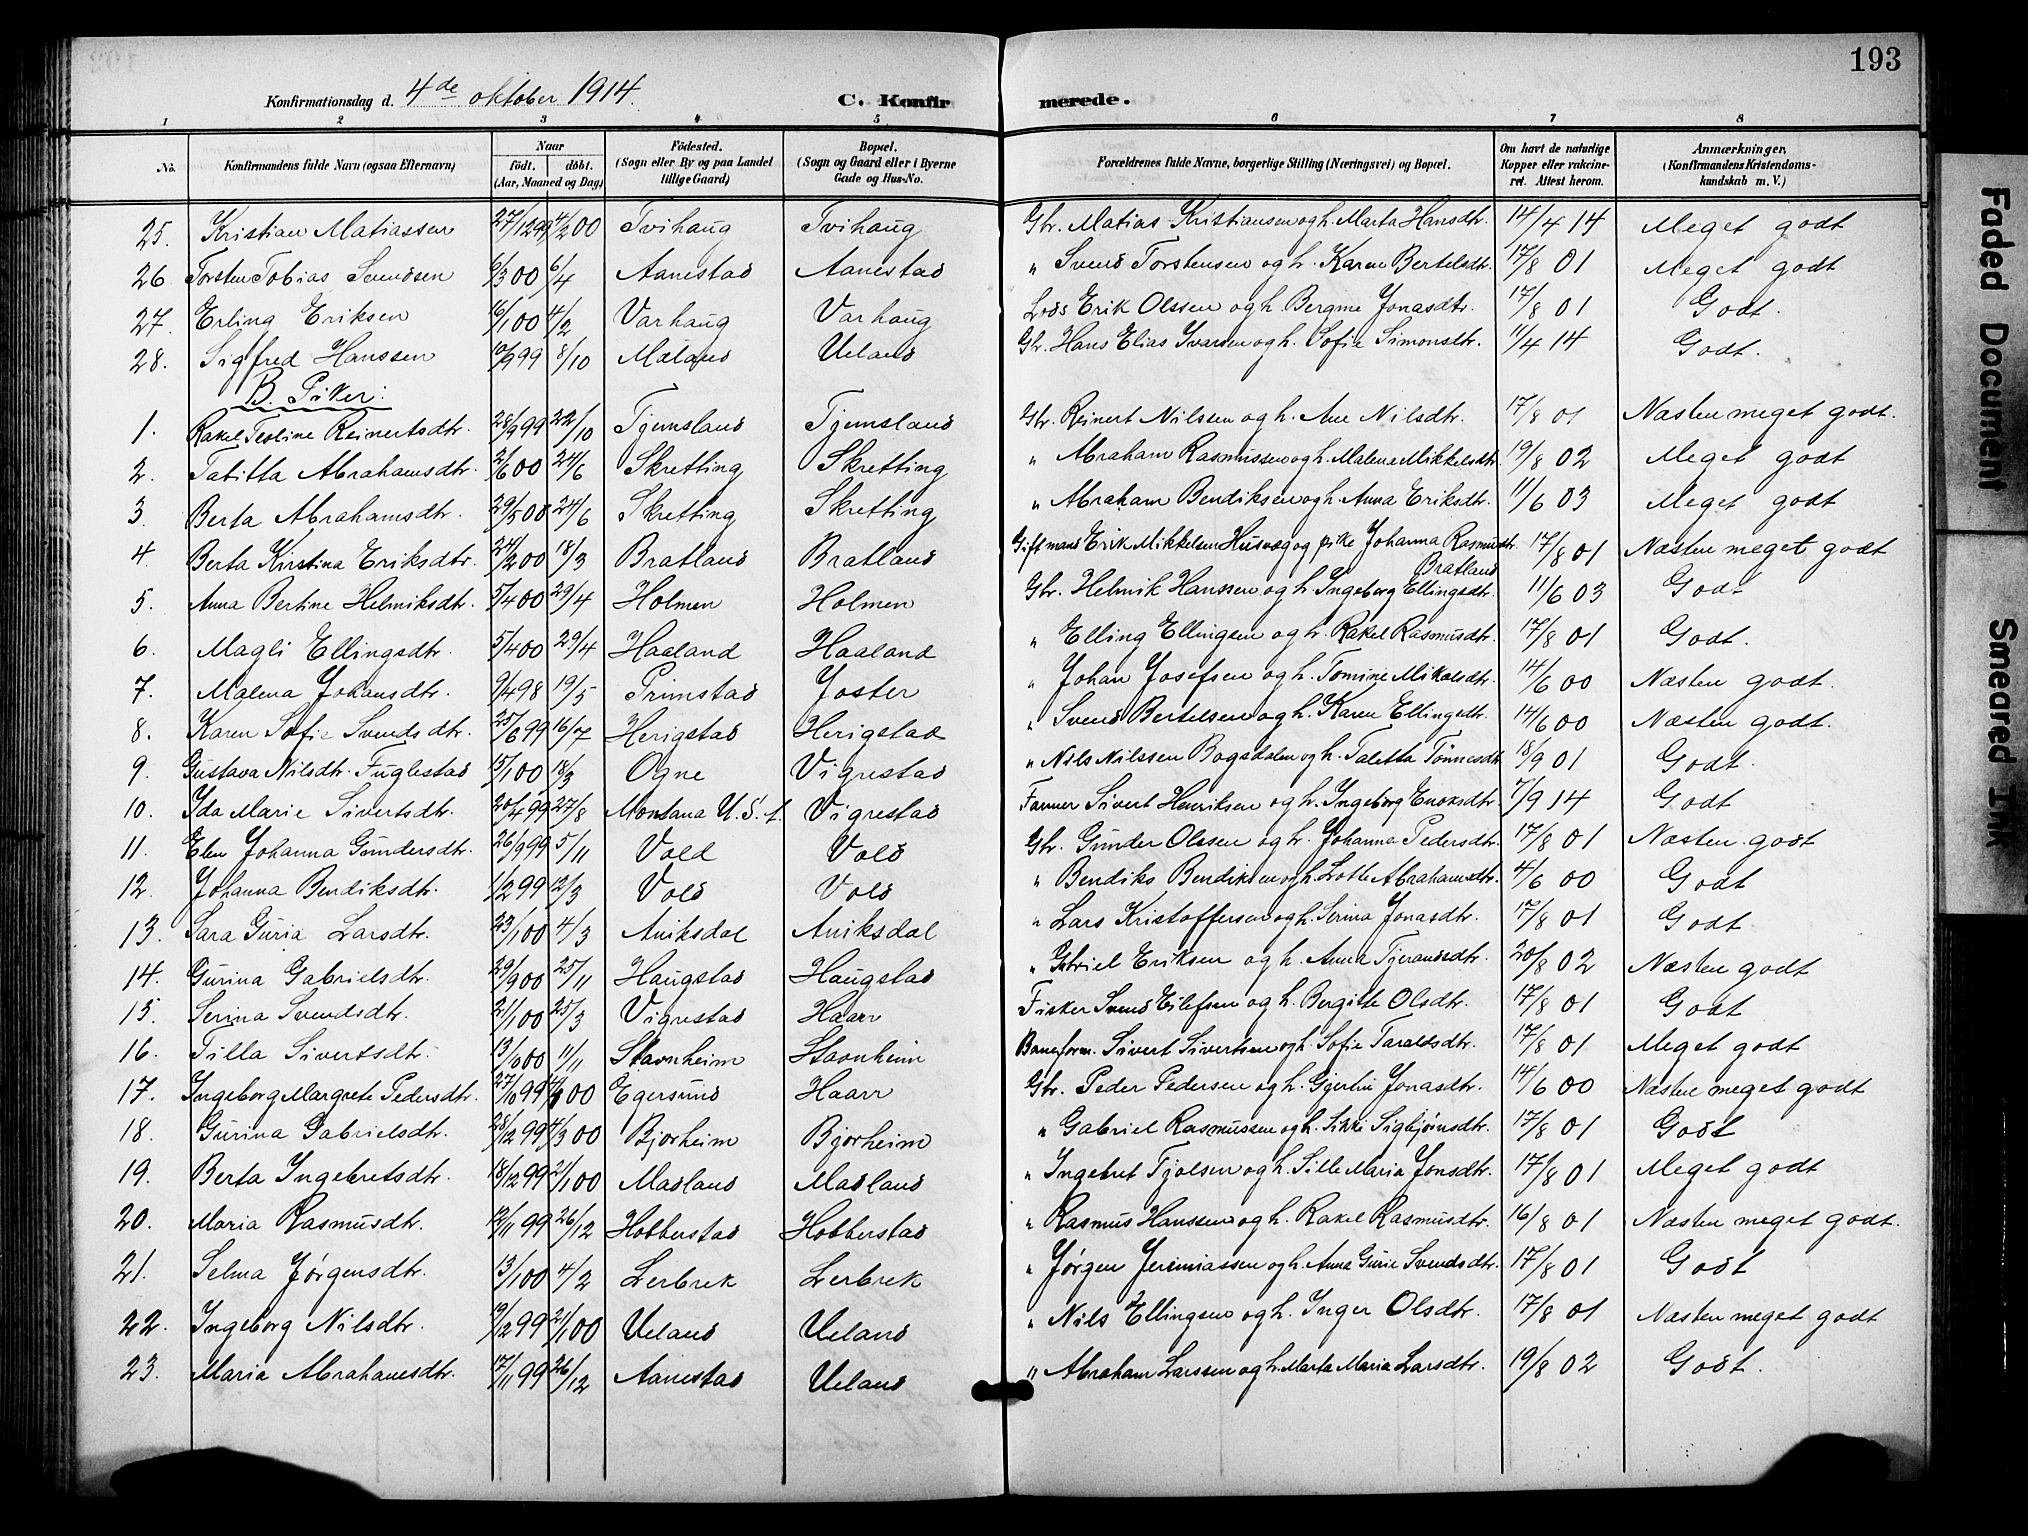 193
Konfirmationsdag d. 4de oktober 1914. C. Konfirmerede.
1 2 3 4 5 6 7 8
No. Konfirmandens fulde Navn (ogsaa Efternavn) Naar født. døbt. (Aar, Maaned og Dag) Fødested. (Sogn eller By og paa Landet tillige Gaard) Bopæl. (Sogn og Gaard eller i Byerne Gade og Hus-No. Forældrenes fulde Navne, borgerlige Stilling (Næringsvei) og Bopæl. Om havt de naturlige Kopper eller vakcineret. Attest herom. Anmærkninger, (Konfirmandens Kristendomskundskab m. V.)
25. Kristian Matiassen 27/12 99 4/2 00 Tvihaug Tvihaug Gbr. Matias Kristiansen og h. Marta Hansdtr. 14/4 14 Meget godt
26 Torsten Tobias Svendsen 6/3 00 6/4 Aanestad Aanestad " Svend Torstensen og h. Karen Bertelsdtr. 17/8 01 Meget godt
27. Erling Eriksen 16/1 00 4/2 Varhaug Varhaug Lods Erik Olssen og h. Bergine Jonasdtr. 17/8 01 Godt.
28. Sigfred Hanssen 10/9 99 8/10 Mæland Ueland Gbr. Hans Elias Ivarsen og h. Sofie Simonsdtr. 11/4 14 Godt.
B. Piker:
1. Rakel Teoline Reinertsdtr. 28/9 99 22/10 Tjemsland Tjemsland Gbr. Reinert Nilssen og h. Ane Nilsdtr. 17/8 01 Næsten meget godt.
2. Tabitta Abrahamsdtr. 2/6 00 24/6 Skretting Skretting " Abraham Rasmussen og h. Malena Mikkelsdtr. 19/8 02 Meget godt
3. Berta Abrahamsdtr. 29/5 00 24/6 Skretting Skretting " Abraham Bendiksen og h. Anna Eriksdtr. 11/6 03 Meget godt
4. Berta Kirstina Eriksdtr. 24/2 00 18/3 Bratland Bratland Gift mand Erik Mikkelsen Husvæg og pike Johanna Rasmusdtr. Bratland 17/8 01 Næsten meget godt
5. Anna Bertine Helmiksdtr. 5/4 00 29/4 Holmen Holmen Gbr. Helmik Hanssen og h. Ingeborg Ellingsdtr. 11/6 03 Godt
6. Magli Ellingsdtr. 5/4 00 29/4 Haaland Haaland " Elling Ellingsen og h. Rakel Rasmusdtr. 17/8 01 Godt.
7. Malena Johansdtr. 9/4 98 19/5 Primstad Joster " Johan Josefsen og h. Tomine Mikalsdtr. 14/6 00 Næsten godt.
8. Karen Sofie Svendsdtr. 25/6 99 16/7 Herigstad Herigstad " Svend Bertelsen og h. Karen Ellingsdtr. 14/6 00 Næsten godt.
9. Gustava Nilsdtr. Fuglestad 15/1 00 18/3 Ogne Vigrestad " Nils Nilssen Bogsdalen og h. Taletta Tønnesdtr 18/9 01 Godt.
10. Ida Marie Sivertsdtr. 20/4 99 27/8 Montana U. S. A. Vigrestad Farmer Sivert Henriksen og h. Ingeborg Enoksdtr. 7/9 14 Godt
11. Elen Johanna Gundersdtr. 26/9 99 5/11 Vold Vold Gbr. Gunder Olssen og h. Johanna Pedersdtr. 17/8 01 Næsten godt
12. Johanna Bendiksdtr. 1/2 99 12/3 Vold Vold " Bendiks Bendiksen og h. Lotte Abrahamsdtr. 4/6 00 Godt
13. Sara Guria Larsdtr. 23/1 00 4/3 Aniksdal Aniksdal " Lars Kristoffersen og h. Serina Jonasdtr. 17/8 01 Godt
14. Gurina Gabrielsdtr. 29/9 00 25/11 Haugstad Haugstad " Gabriel Eriksen og h. Anna Tjerandsdtr. 20/8 02 Næsten godt
15. Serina Svendsdtr. 21/1 00 25/3 Vigrestad Haarr Fisker Svend Eilefsen og h. Bergitte Olsdtr. 17/8 01 Godt
16. Tilla Sivertsdtr. 13/ 00 11/11 Stavnheim Stavnheim Baneform. Sivert Sivertsen og h. Sofie Taraldsdtr. 17/8 01 Meget godt
17. Ingeborg Margrete Pedersdtr. 27/ 99 00 Egersund Haarr Gbr. Peder Pedersen og h. Gjertine Jonasdtr. 14/6 00 Næsten meget godt
18. Gurina Gabrielsdtr. 28/12 99 4/3 00 Bjorheim Bjorheim " Gabriel Rasmussen og h. Sikki Sigbjørnsdtr. 17/8 01 Godt
19. Berta Ingebretsdtr. 18/12 99 21/1 00 Madland Madland " Ingebret Tjølsen og h. Sille Maria Jonsdtr. 17/8 01 Meget godt
20. Maria Rasmusdtr. 12/11 99 26/12 Hobberstad Hobberstad " Rasmus Hanssen og h. Rakel Rasmusdtr. 16/8 01 Næsten meget godt.
21. Selma Jørgensdtr. 13/1 00 4/2 Lerbrek Lerbrek " Jørgen Jeremiassen og h. Anna Gurie Svendsdtr. 17/8 01 Godt
22. Ingeborg Nilsdtr. 19/12 99 21/1 00 Ueland Ueland " Nils Ellingsen og h. Inger Olsdtr. 17/8 01 Næsten meget godt
23. Maria Abrahamsdtr. 17/11 99 26/12 Aanestad Ueland " Abraham Larssen og h. Marta Maria Larsdtr. 19/8 02 Godt.
Faded Document
Smeared Ink